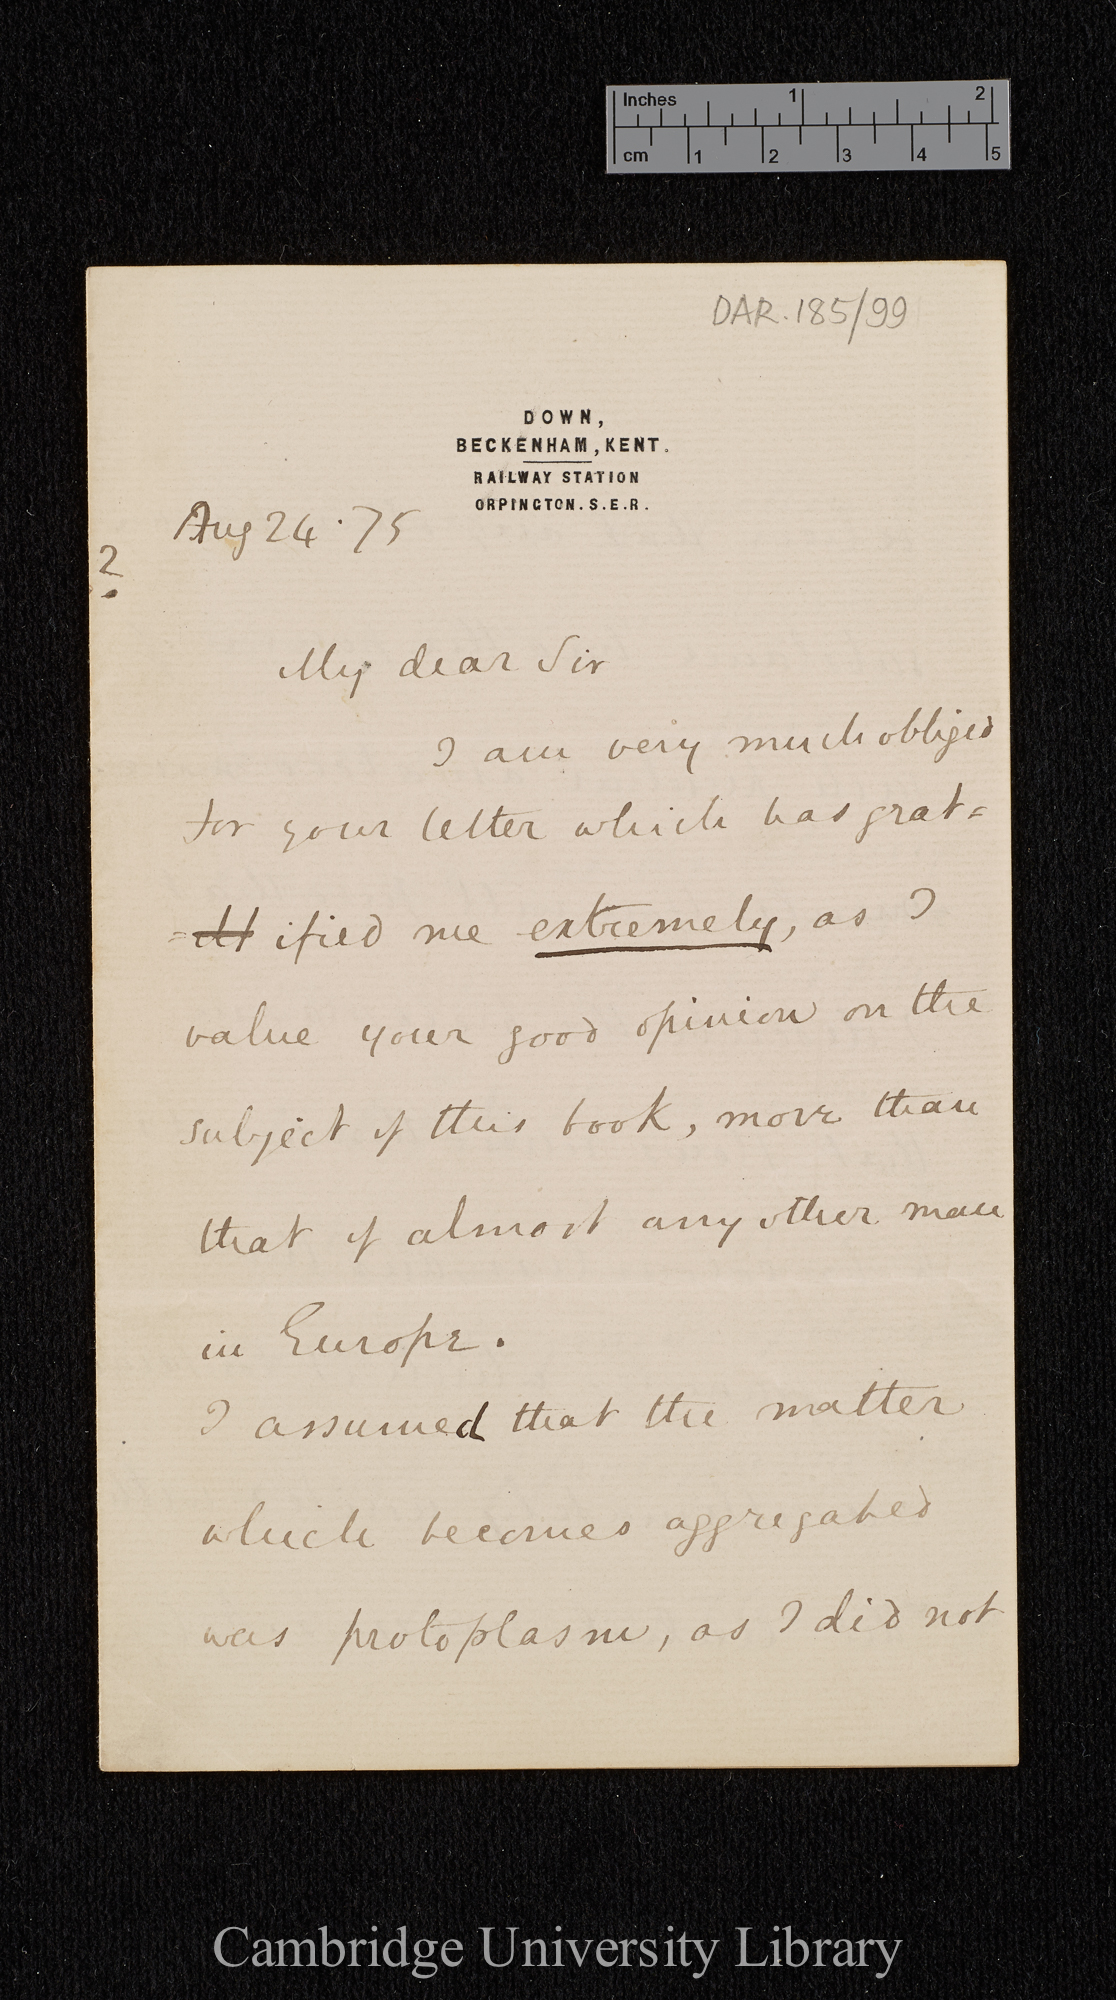 Inches 1 2
cm 1 2 3 4 5
DAR.185/99
DOWN,
BECKENHAM, KENT.
RAILWAY STATION
ORPINGTON. S.E.R.
Aug 24 · 75
?
My dear Sir
I am very much obliged
for your letter which has grat=
= ified me extremely, as I
value your good opinion on the
subject of this book, more than
that of almost any other man
in Europe.
I assumed that the matter
which becomes aggregated
was protoplasm, as I did not
Cambridge University Library